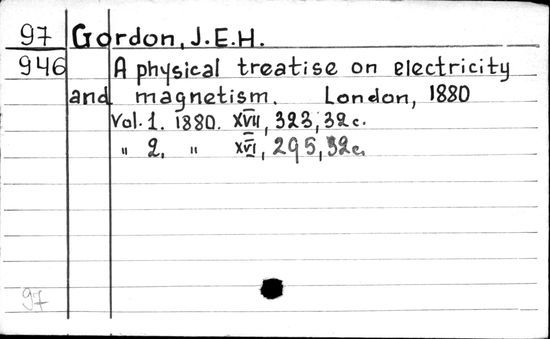 97 Gordon, J.E.H.
946 A physical treatise on electricity
and magnetism. London, 1880
Vol. 1. 1880. XVII, 323, 32c.
" 2. " XVI, 295, 32c.
97